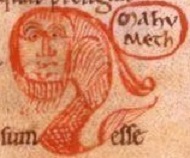 Mahu
meth
sum esse